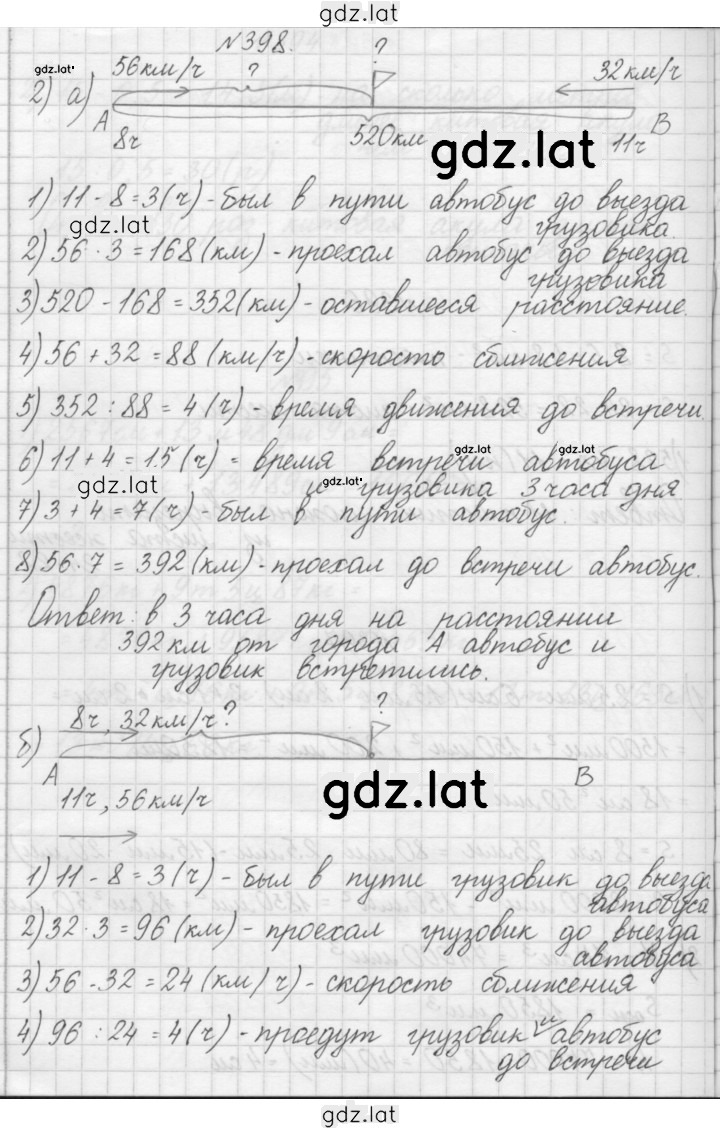 gdz.lat
№398.
?
gdz.lat
56км/ч
?
32км/ч
2) а)
А
В
8ч
520км
11ч
gdz.lat
1) 11 - 8 = 3 (ч) - был в пути автобус до выезда
грузовика.
gdz.lat
2) 56 · 3 = 168 (км) - проехал автобус до выезда
грузовика
3) 520 - 168 = 352 (км) - оставшееся расстояние.
4) 56 + 32 = 88 (км/ч) - скорость сближения
5) 352 : 88 = 4 (ч) - время движения до встречи.
6) 11 + 4 = 15 (ч) = время встречи автобуса
gdz.lat
gdz.lat
gdz.lat
и грузовика 3 часа дня
7) 3 + 4 = 7 (ч) - был в пути автобус.
8) 56 · 7 = 392 (км) - проехал до встречи автобус.
Ответ: в 3 часа дня на расстоянии
392 км от города А автобус и
грузовик встретились.
8ч, 32км/ч?
?
б)
А
В
11ч, 56км/ч
gdz.lat
1) 11 - 8 = 3 (ч) - был в пути грузовик до выезда
автобуса
2) 32 · 3 = 96 (км) - проехал грузовик до выезда
автобуса
3) 56 - 32 = 24 (км/ч) - скорость сближения
4) 96 : 24 = 4 (ч) - проедут грузовик и автобус
до встречи
gdz.lat